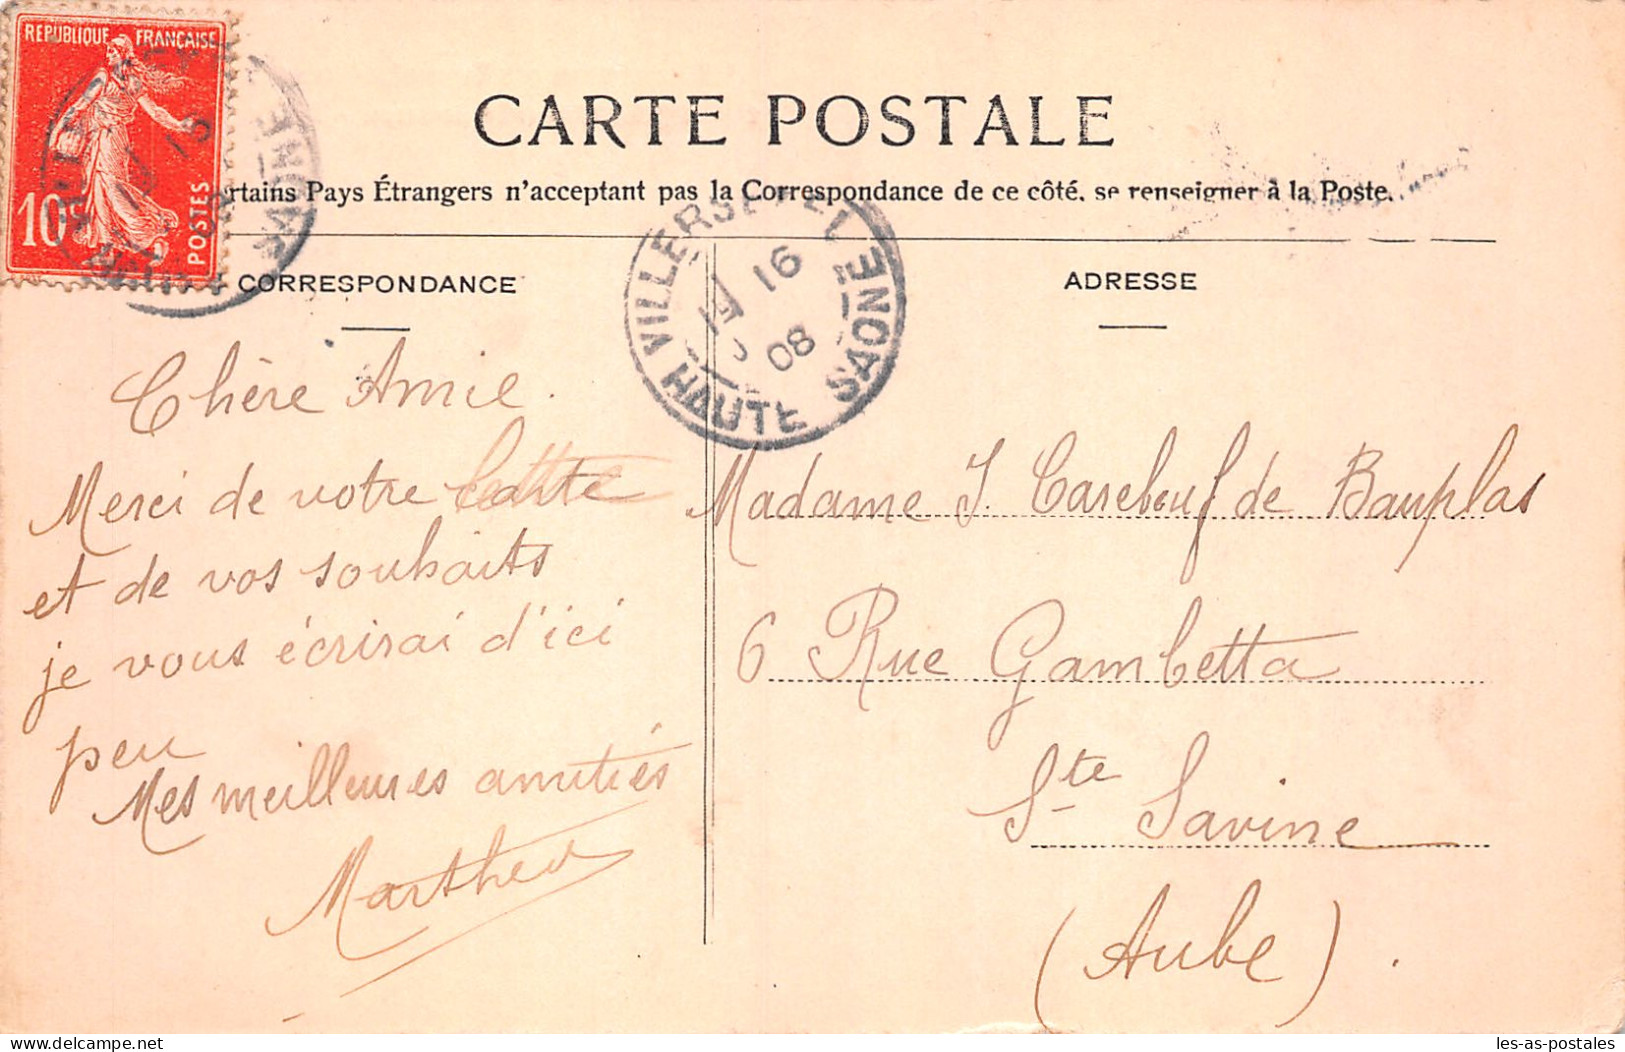 REPUBLIQUE FRANÇAISE
10c
POSTES
CARTE POSTALE
rtains Pays Étrangers n'acceptant pas la Correspondance de ce côté, se renseigner à la Poste.
CORRESPONDANCE
ADRESSE
VILLERSEXEL
16
08
HAUTE SAONE
Chère Amie.
Merci de votre carte
et de vos souhaits
je vous écrirai d'ici
peu
Mes meilleures amitiés
Madame J. Carebeuf de Bauplas
6 Rue Gambetta
Ste Savine
(Aube).
les-as-postales